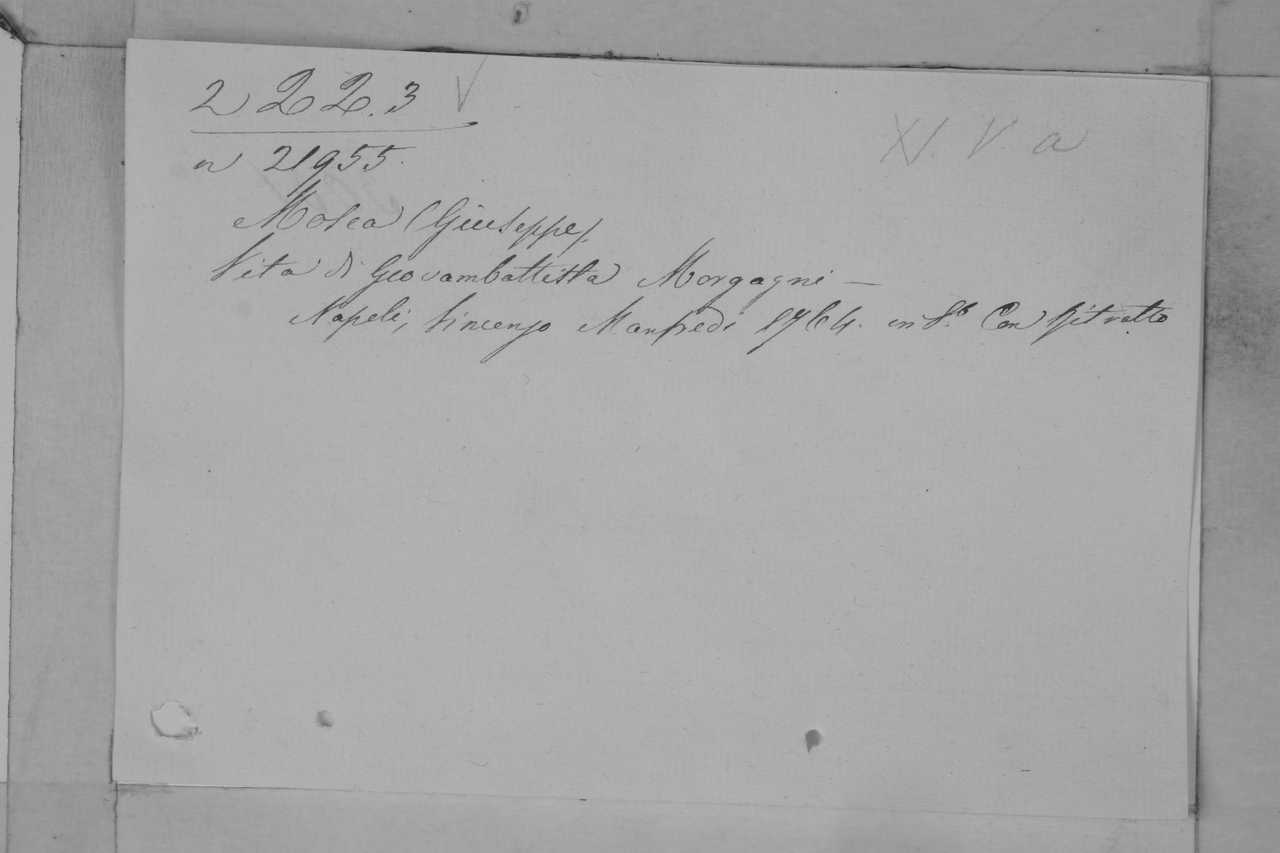 2 22.3 V
XV. V. a
n 21955.
Mosca (Giuseppe).
Vita di Giovambattista Morgagni —
Napoli, Vincenzo Manfredi 1764. in 8.° Con Ritratto